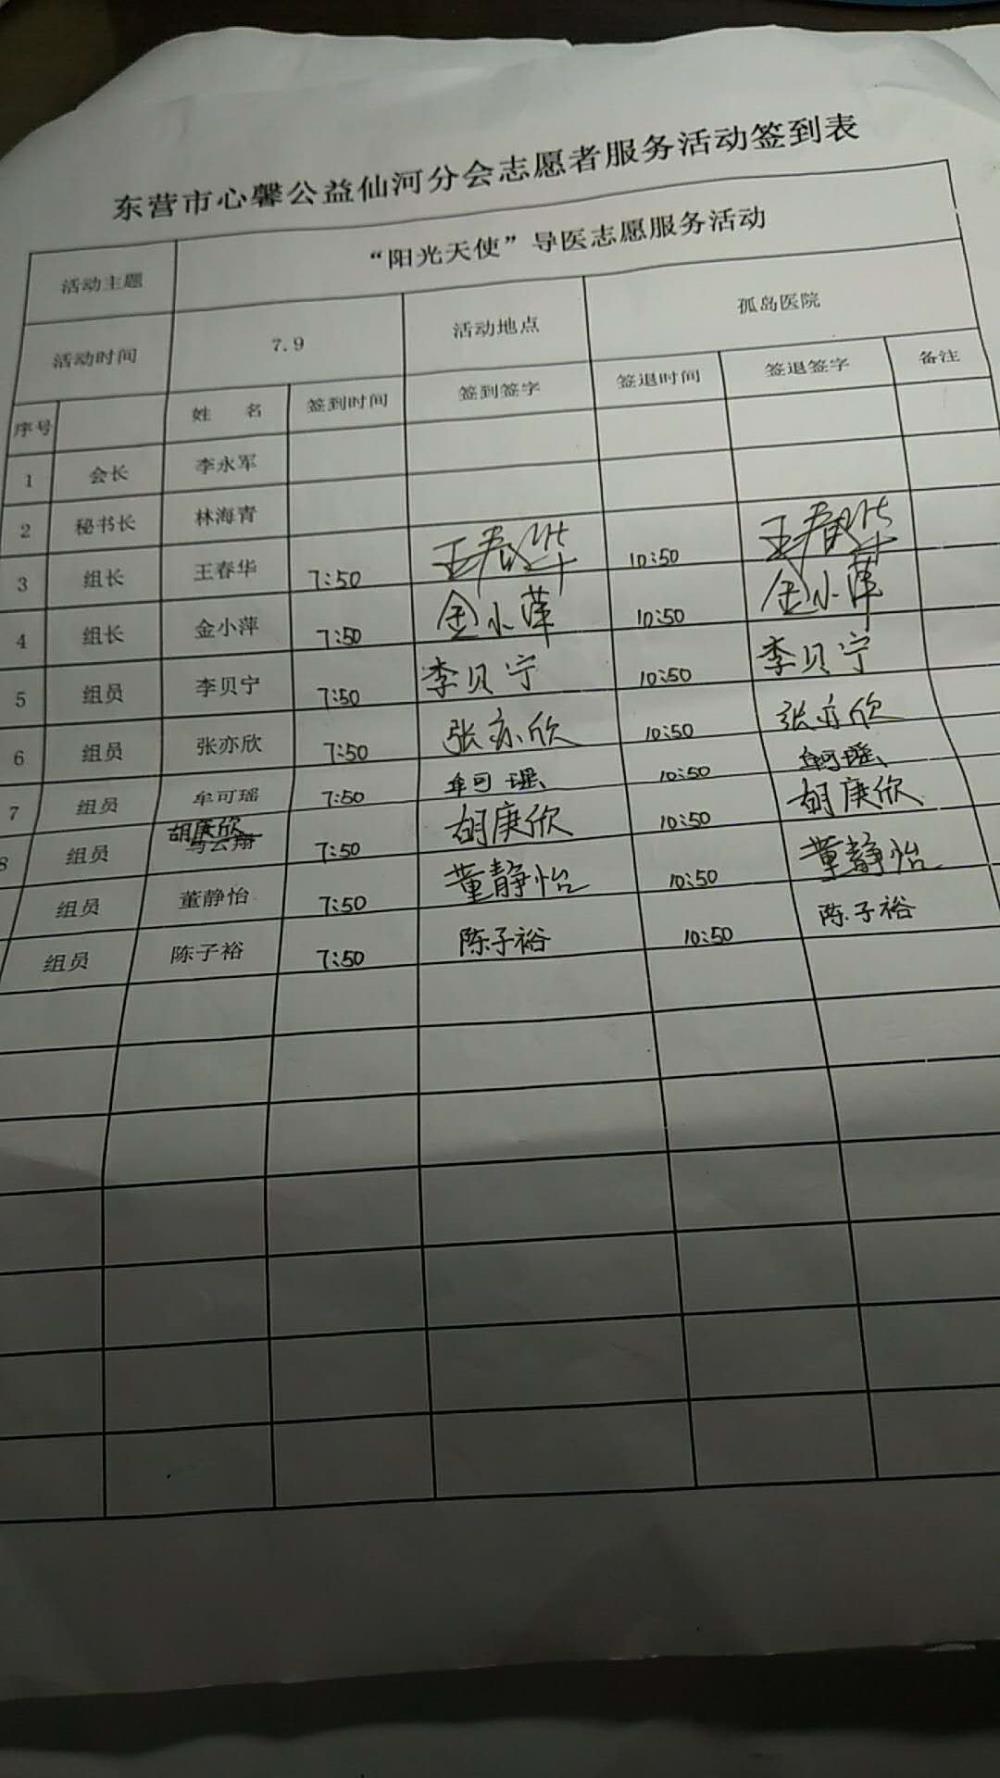 东营市心馨公益仙河分会志愿者服务活动签到表
活动主题 “阳光天使”导医志愿服务活动
活动时间 7.9 活动地点 孤岛医院
序号 姓 名 签到时间 签到签字 签退时间 签退签字 备注
1 会长 李永军
2 秘书长 林海青
3 组长 王春华 7:50 王春华 10:50 王春华
4 组长 金小萍 7:50 金小萍 10:50 金小萍
5 组员 李贝宁 7:50 李贝宁 10:50 李贝宁
6 组员 张亦欣 7:50 张亦欣 10:50 张亦欣
7 组员 牟可瑶 7:50 牟可瑶 10:50 牟可瑶
胡庚欣
8 组员 马云翔 7:50 胡庚欣 10:50 胡庚欣
组员 董静怡 7:50 董静怡 10:50 董静怡
组员 陈子裕 7:50 陈子裕 10:50 陈子裕